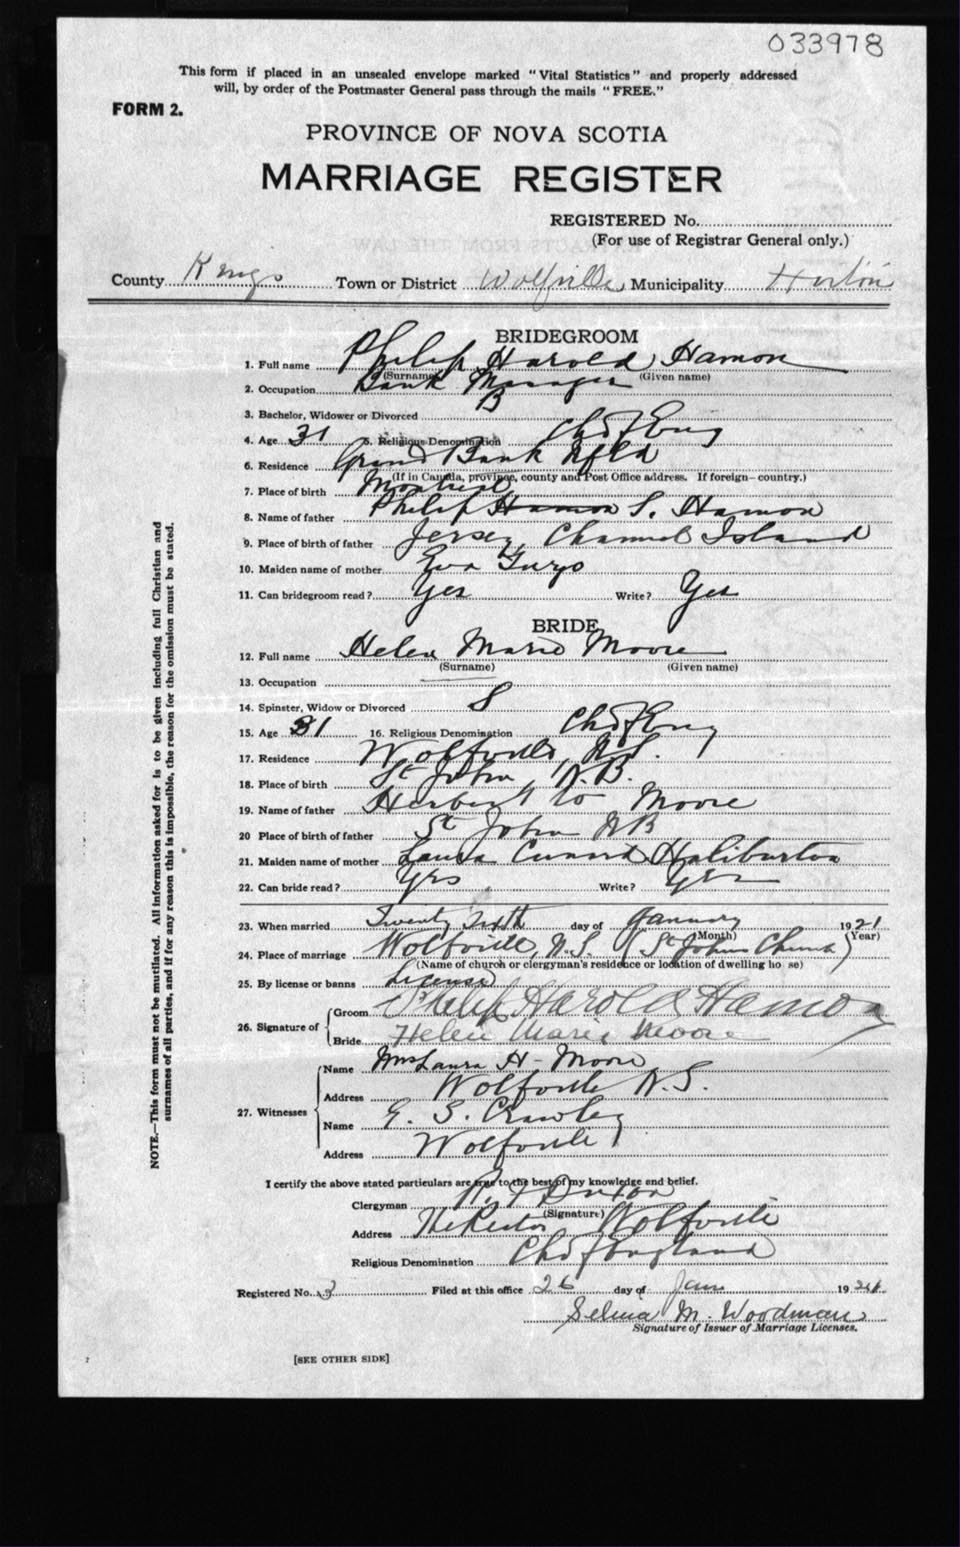 033978
This form if placed in an unsealed envelope marked "Vital Statistics" and properly addressed
will, by order of the Postmaster General pass through the mails "FREE."
FORM 2.
PROVINCE OF NOVA SCOTIA
MARRIAGE REGISTER
REGISTERED No.
(For use of Registrar General only.)
County Kings Town or District Wolfville Municipality Horton
BRIDEGROOM
1. Full name Philip Harold Hamon
(Surname) (Given name)
2. Occupation Bank Manager
3. Bachelor, Widower or Divorced B
4. Age 31 5. Religious Denomination Ch of Eng
6. Residence Grand Bank Nfld
(If in Canada, province, county and Post Office address. If foreign—country.)
7. Place of birth Montreal
8. Name of father Philip Hamon S. Hamon
9. Place of birth of father Jersey Channel Island
10. Maiden name of mother Eva
11. Can bridegroom read? Yes Write? Yes
BRIDE
12. Full name Helen Marie Moore
(Surname) (Given name)
13. Occupation
14. Spinster, Widow or Divorced S
15. Age 31 16. Religious Denomination Ch of Eng
17. Residence Wolfville, N.S.
18. Place of birth St John N.B.
19. Name of father Herbert Moore
20 Place of birth of father St John NB
21. Maiden name of mother Laura Cunard Haliburton
22. Can bride read? Yes Write? Yes
23. When married Twenty sixth day of January 1921
(Month) (Year)
24. Place of marriage Wolfville, N.S. (St Johns Church)
(Name of church or clergyman's residence or location of dwelling ho se)
25. By license or banns License
26. Signature of Groom Philip Harold Hamon
Bride Helen Marie Moore
27. Witnesses Name Mrs Laura H. Moore
Address Wolfville N.S.
Name E. S. Crawley
Address Wolfville
I certify the above stated particulars are true to the best of my knowledge and belief.
Clergyman R. F. Dixon
(Signature)
Address The Rectory Wolfville
Religious Denomination Ch of England
Registered No. 3 Filed at this office 26 day of Jan 1921
Selina M. Woodman
Signature of Issuer of Marriage Licenses.
[SEE OTHER SIDE]
NOTE.—This form must not be mutilated. All information asked for is to be given including full Christian and
surnames of all parties, and if for any reason this is impossible, the reason for the omission must be stated.